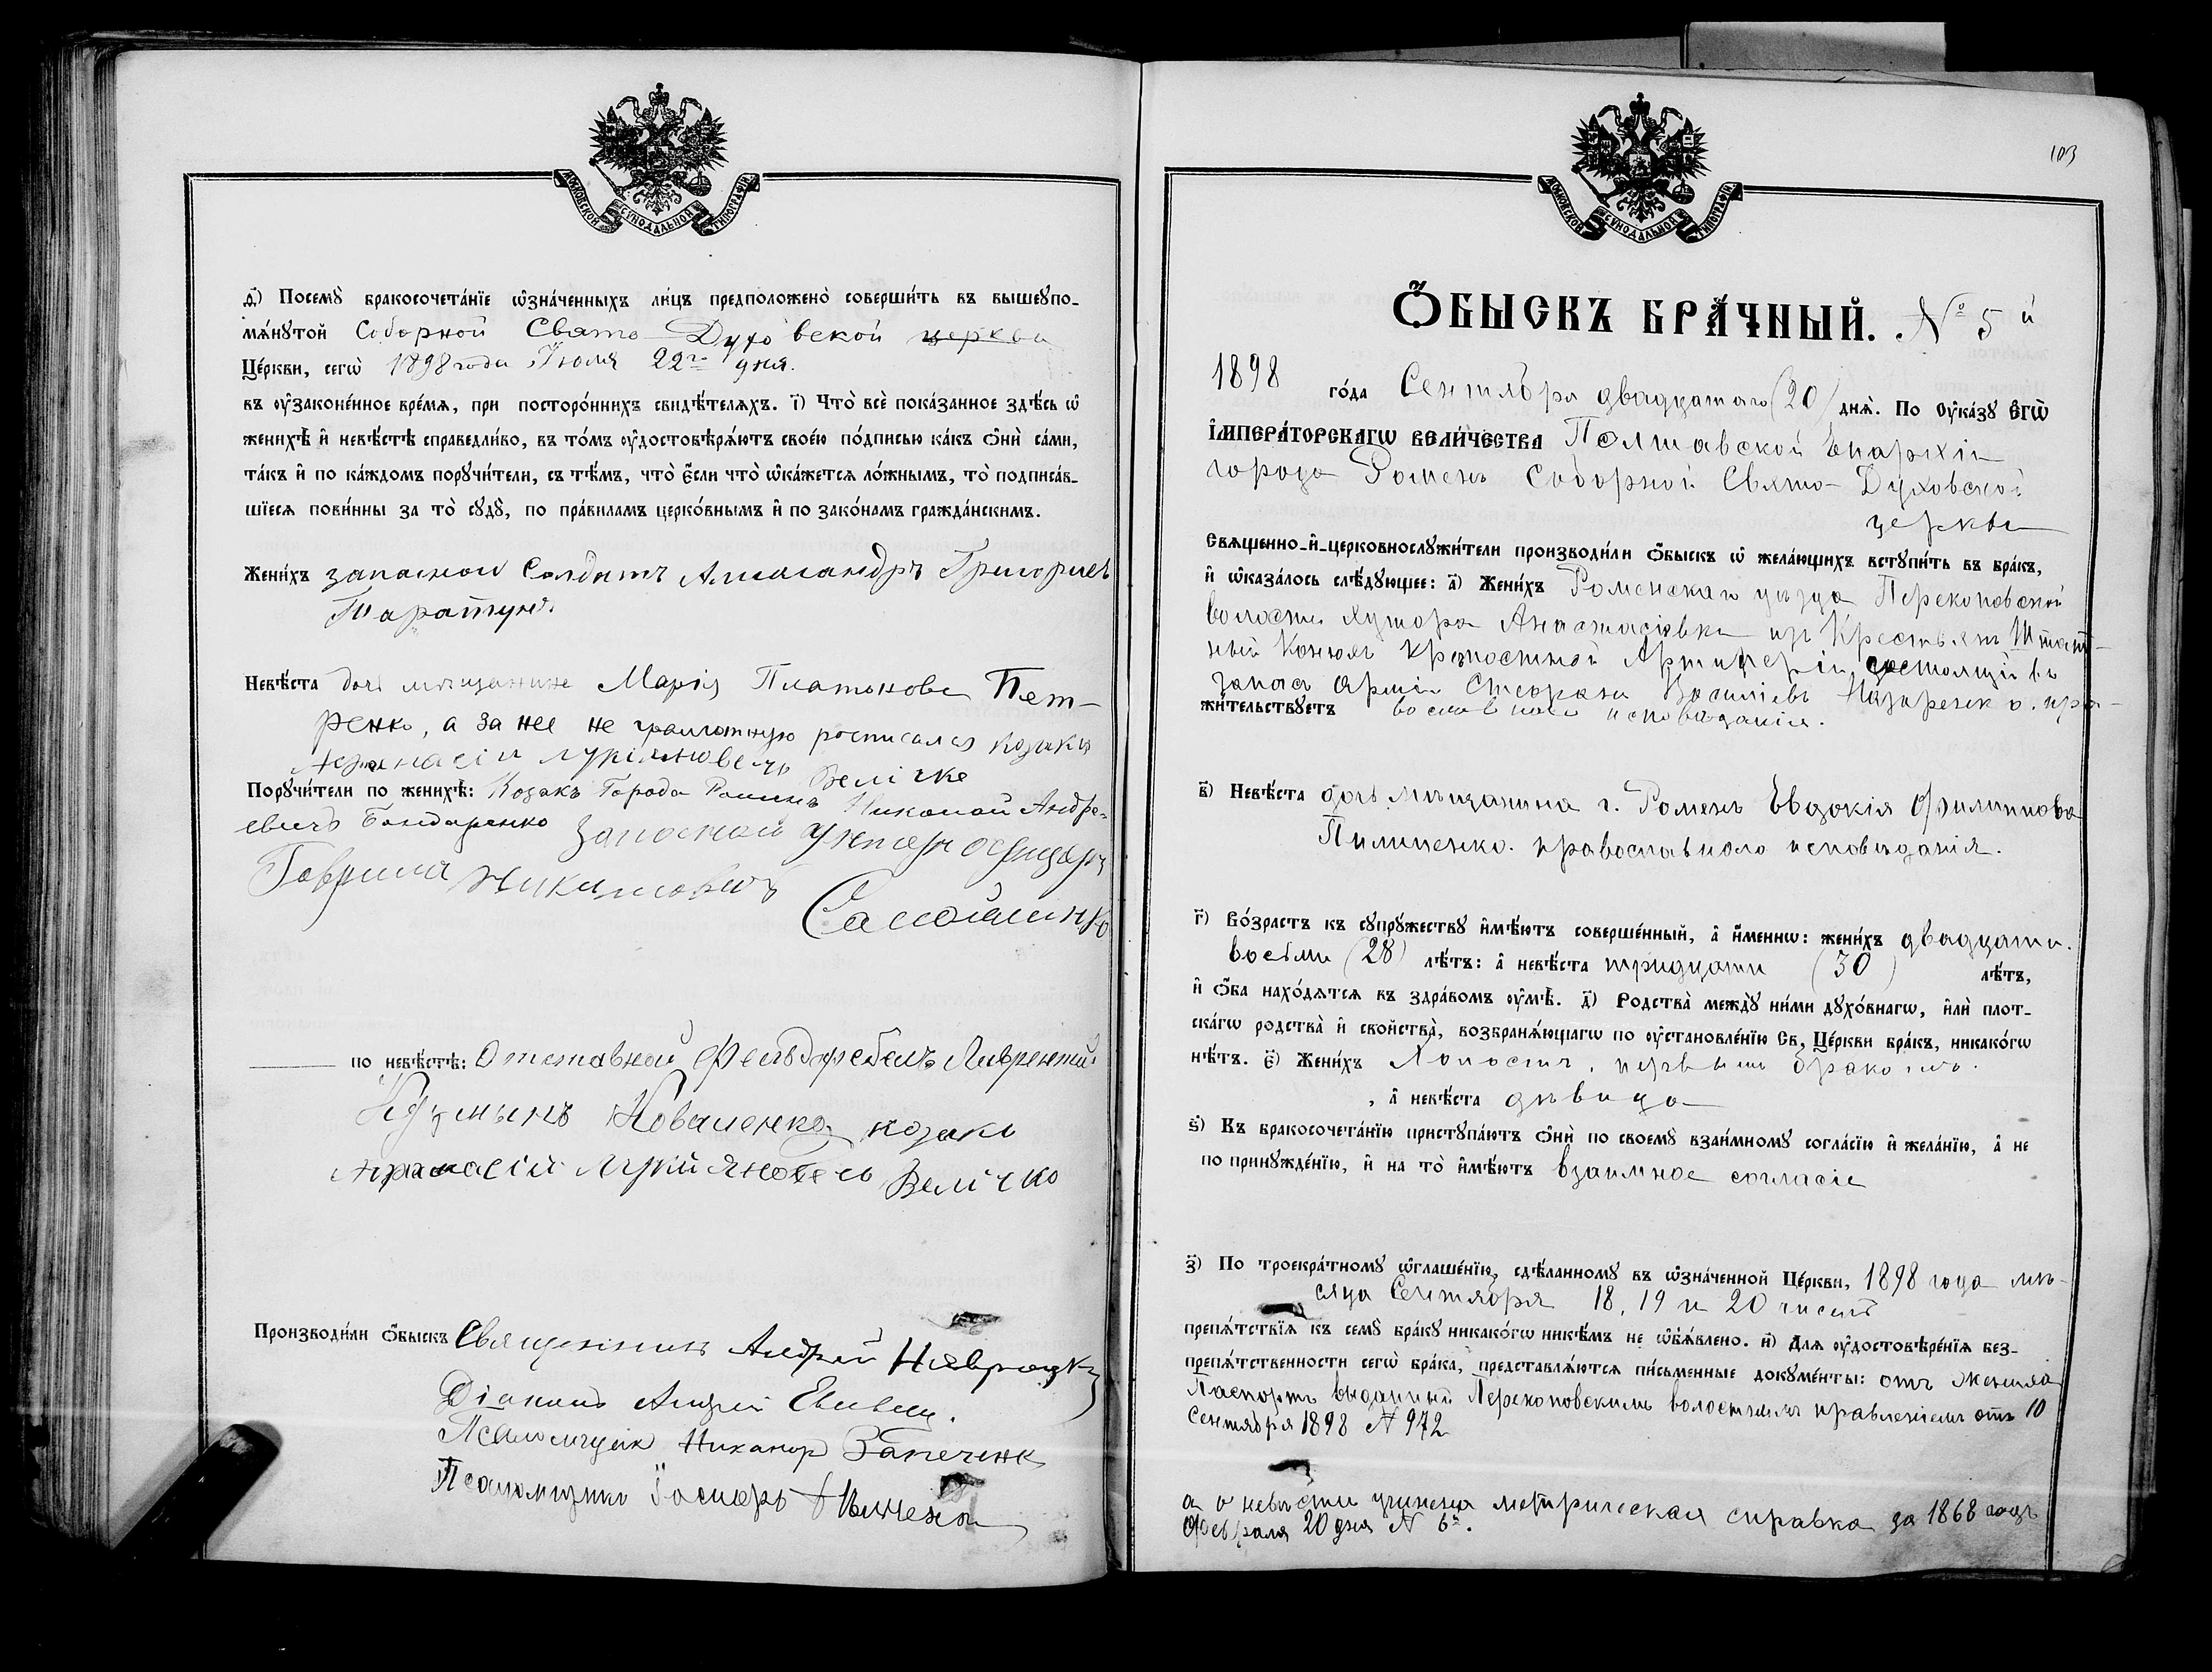 МОСКОВСКОЙ СѴНОДАЛЬНОЙ ТИПОГРАФІИ
ѳ҃) Посемꙋ̀ бракосочета́нїе ѡ҆зна́ченныхъ ли́цъ предположено̀ соверши́ть въ вышеꙋпо-
мѧ́нꙋтой Соборной Свято-Духовской церкви
Це́ркви, сегѡ̀ 1898 года Іюля 22го дня.
въ ᲂу҆зако́не́нное вре́мѧ, при посторо́ннихъ свидѣ́телѧхъ. і҃) Что̀ всѐ пока́занное здѣ́сь ѡ҆
женихѣ̀ и҆ невѣ́стѣ справедли́во, въ то́мъ ᲂу҆достовѣрѧ́ютъ свое́ю по́дписью ка́къ ѻ҆нѝ са́ми,
та́къ и҆ по ка́ждомъ порꙋчи́тели, съ тѣ́мъ, что̀ є҆́сли что̀ ѡ҆ка́жетсѧ ло́жнымъ, то̀ подписа́в-
шїесѧ пови́нны за то̀ сꙋдꙋ̀, по пра́виламъ церко́внымъ и҆ по зако́намъ гражда́нскимъ.
Жени́хъ запасной Солдатъ Александръ Григорiевъ
Таратунъ
Невѣ́ста дочь мѣщанина Марія Платонова Пет-
ренко, а за нее не грамотную росписался козакъ
Афанасій Лукіяновичъ Велічко
Порꙋчи́тели по женихѣ̀: Козакъ Города Роменъ Николай Андре-
евичъ Бондаренко Запосной Унтеръ офицеръ
Гаврила Никитовичъ
Самойленко
по невѣ́стѣ: Отставной Фельдфебель Лаврентій
Кузминъ Коваленко, козакъ
Афанасій Лукіяновичъ Велічко
Производи́ли ѻ҆́быскъ Священникъ Андрей Навроцкій
Діаконъ Андрей
Псаломщик Никанор
Псаломщикъ
103
МОСКОВСКОЙ СѴНОДАЛЬНОЙ ТИПОГРАФІИ
Ѻ҆́БЫСКЪ БРА́ЧНЫЙ. № 5й
1898 го́да Сентября двадцатаго (20) днѧ̀. По ᲂу҆ка́зꙋ Є҆гѡ̀
І҆МПЕРА́ТОРСКАГѠ ВЕЛИ́ЧЕСТВА Полтавской Епархіи
города Роменъ Соборной Свято-Духовской
церкви
Свѧще́нно-и҆-церковнослꙋжи́тели производи́ли ѻ҆́быскъ ѡ҆ жела́ющихъ встꙋпи́ть въ бра́къ,
и҆ ѡ҆каза́лось слѣ́дꙋющее: а҃) Жени́хъ Роменскаго уѣзда Перекоповской
волости хутора Анастасіевки изъ Крестьянъ Штат-
ный Конюхъ крѣпостной Артиллеріи состоящій въ
запасѣ Арміи Стефанъ Василіевъ Назаренко. пра-
жи́тельствꙋетъ вославнаго исповѣданія.
в҃) Невѣ́ста дочь мѣщанина г. Роменъ Евдокія Филиппова
Пилипенко. православнаго исповѣданія.
г҃) Во́зрастъ къ сꙋпрꙋ́жествꙋ и҆мѣ́ютъ соверше́нный, а҆ и҆́меннѡ: жени́хъ двадцати.
восьми (28) лѣ́тъ: а҆ невѣ́ста тридцати (30) лѣ́тъ,
и҆ ѻ҆́ба нахо́дѧтсѧ въ здра́вомъ ᲂу҆мѣ̀. д҃) Родства̀ междꙋ̀ ни́ми дꙋхо́внагѡ, и҆лѝ плот-
ска́гѡ родства̀ и҆ сво́йства, возбранѧ́ющагѡ по ᲂу҆становле́нїю Св. Це́ркви бра́къ, никако́гѡ
нѣ́тъ. є҃) Жени́хъ Холостъ, первымъ бракомъ.
, а҆ невѣ́ста дѣвица
ѕ҃) Къ бракосочета́нїю пристꙋпа́ютъ ѻ҆нѝ по своемꙋ̀ взаи́мномꙋ согла́сїю и҆ жела́нїю, а҆ не
по принꙋжде́нїю, и҆ на то̀ и҆мѣ́ютъ взаимное согласіе
з҃) По троекра́тномꙋ ѡ҆глаше́нїю, сдѣ́ланномꙋ въ ѡ҆зна́ченной Це́ркви, 1898 года мѣ-
сяца Сентября 18, 19 и 20 числъ
препѧ́тствїѧ къ семꙋ̀ бра́кꙋ никако́гѡ никѣ́мъ не ѡ҆б̾ѧ́влено. и҃) Длѧ ᲂу҆достовѣре́нїѧ без-
препѧ́тственности сегѡ̀ бра́ка, представлѧ́ютсѧ пи́сьменные докꙋме́нты: отъ жениха
Паспортъ выданный Перекоповскимъ волостнымъ правленіемъ отъ 10
Сентября 1898 № 972
а о невѣсты учинена метрическая справка за 1868 годъ
Февраля 20 дня № 6й.